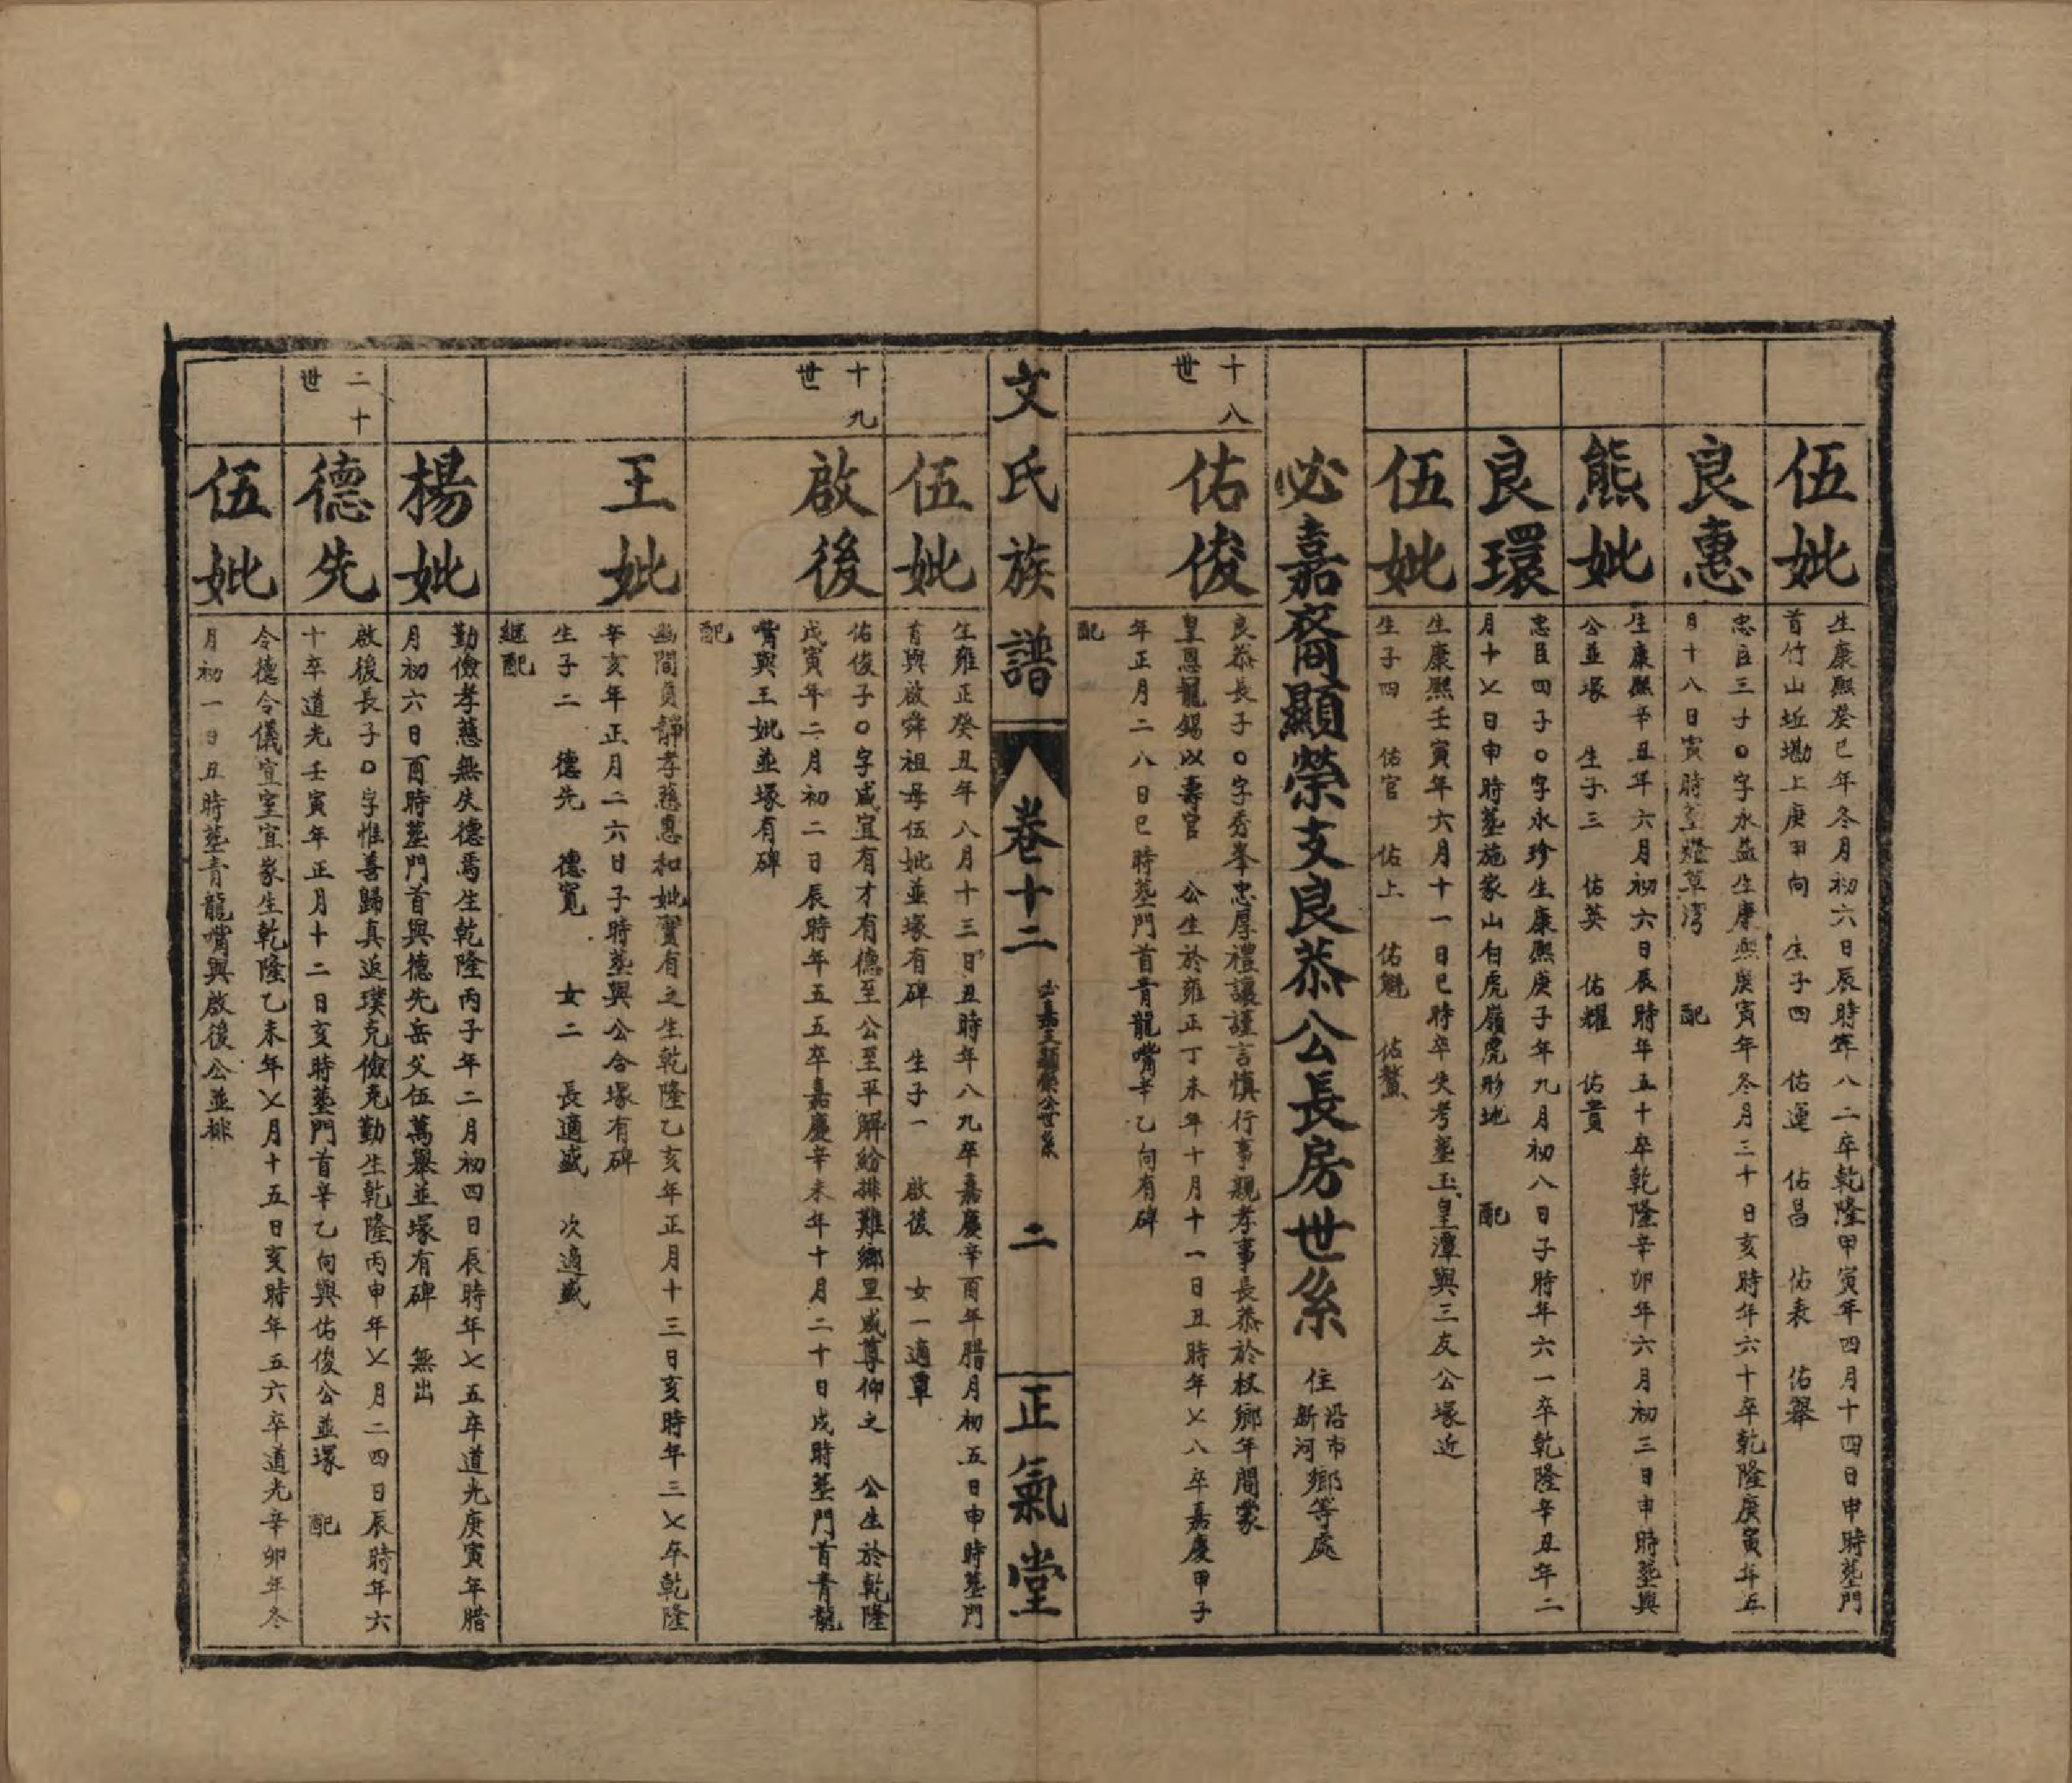 伍妣
生康熙癸巳年冬月初六日辰時年八二卒乾隆甲寅年四月十四日申時塟門
首竹山坵墈上庚甲向 生子四 佑運 佑昌 佑表 佑舉
良惠
忠臣三子〇字永益生康熙庚寅年冬月三十日亥時年六十卒乾隆庚寅年五
月十八日寅時塟燈草湾 配
熊妣
生康熙辛丑年六月初六日辰時年五十卒乾隆辛卯年六月初三日申時塟與
公並塚 生子三 佑英 佑耀 佑貴
良環
忠臣四子〇字永珍生康熙庚子年九月初八日子時年六一卒乾隆辛丑年二
月十乂日申時塟施家山白虎嶺虎形地 配
伍妣
生康熙壬寅年六月十一日巳時卒失考塟玉皇潭與三友公塚近
生子四 佑官 佑上 佑魁 佑鰲
必嘉裔顯榮支良恭公長房世系 住沿市新河鄉等處
十八世
佑俊
良恭長子〇字秀峯忠厚禮讓謹言慎行事親孝事長恭於杖鄉年間蒙
皇恩寵錫以壽官 公生於雍正丁未年十月十一日丑時年乂八卒嘉慶甲子
年正月二八日巳時塟門首青龍嘴辛乙向有碑
配
文氏族譜 卷十二 二 正氣堂
伍妣
生雍正癸丑年八月十三日丑時年八九卒嘉慶辛酉年腊月初五日申時塟門
首與啟舜祖母伍妣並塚有碑 生子一 啟後 女一適覃
十九世
啟後
佑俊子〇字咸宜有才有德至公至平解紛排難鄉里咸尊仰之 公生於乾隆
戊寅年二月初二日辰時年五五卒嘉慶辛未年十月二十日戌時塟門首青龍
嘴與王妣並塚有碑
配
王妣
幽閒貞靜孝慈惠和妣實有之生乾隆乙亥年正月十三日亥時年三乂卒乾隆
辛亥年正月二六日子時塟與公合塚有碑
生子二 德先 德寬 女二 長適盛 次適盛
継配
楊妣
勤儉孝慈無失德焉生乾隆丙子年二月初四日辰時年乂五卒道光庚寅年腊
月初六日酉時塟門首與德先岳父伍萬舉並塚有碑 無出
二十世
德先
啟後長子〇字惟善歸真返璞克儉克勤生乾隆丙申年乂月二四日辰時年六
十卒道光壬寅年正月十二日亥時塟門首辛乙向與佑俊公並塚 配
伍妣
令德令儀宜室宜家生乾隆乙未年乂月十五日亥時年五六卒道光辛卯年冬
月初一日丑時塟青龍嘴與啟後公並排